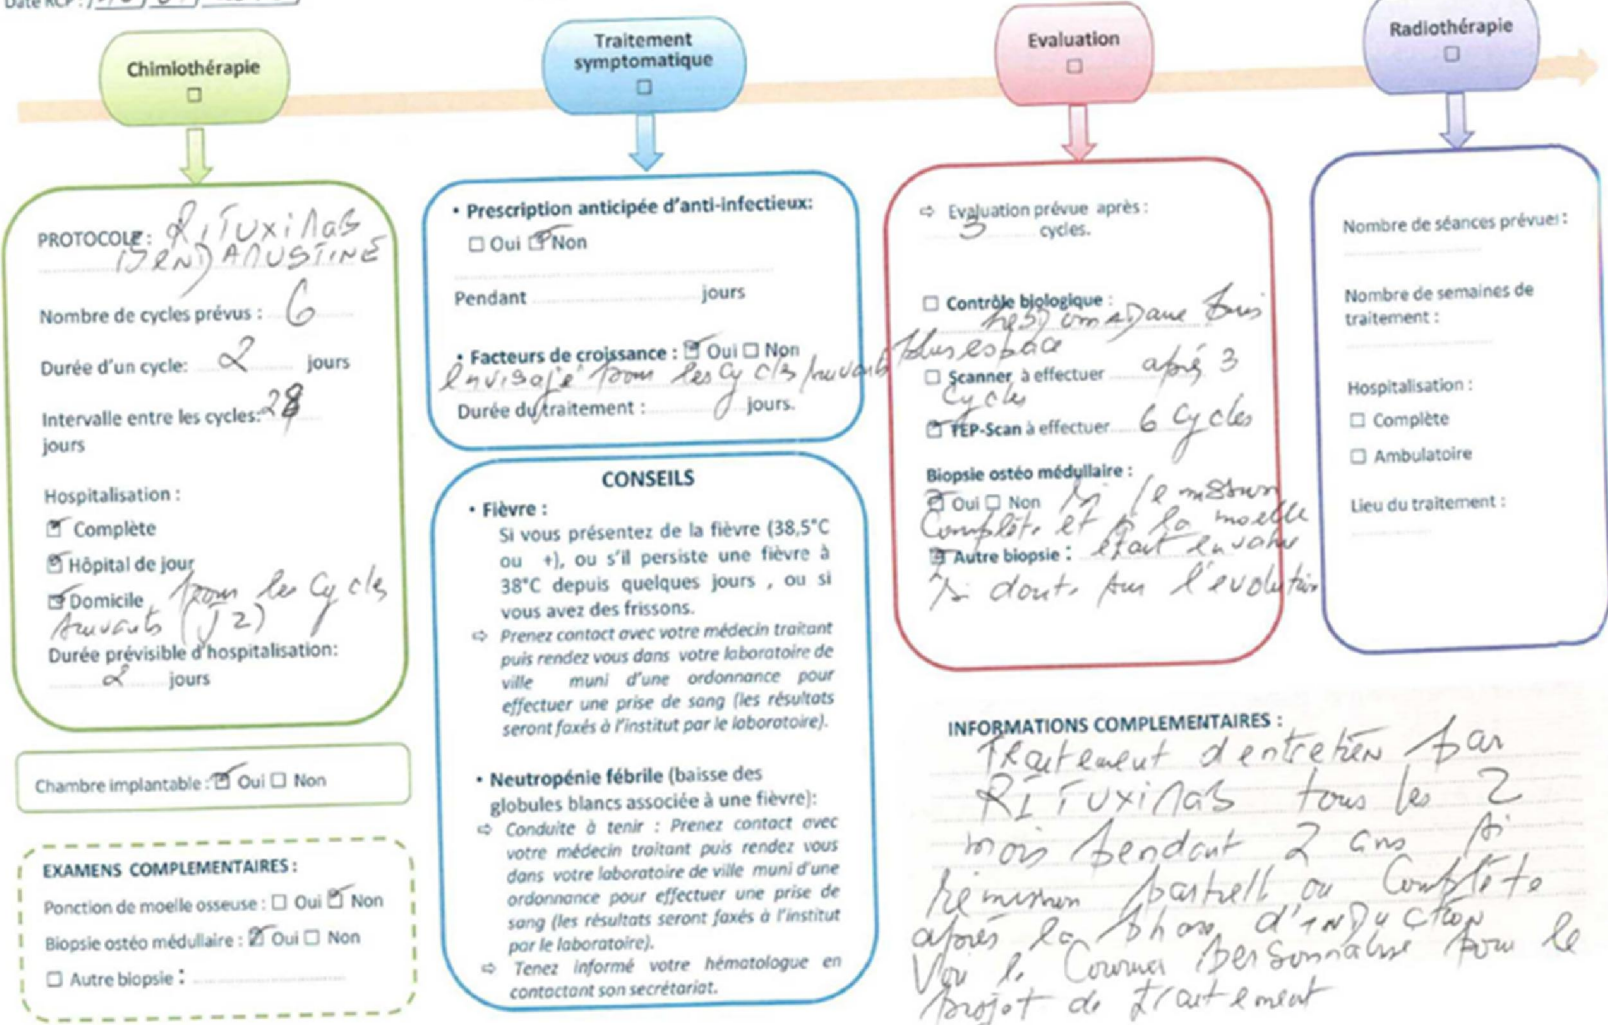 Date RCP :
Chimiothérapie
☐
Traitement
symptomatique
☐
Evaluation
☐
Radiothérapie
☐
PROTOCOLE : RITUXIMAB
BENDAMUSTINE
Nombre de cycles prévus : 6
Durée d'un cycle: 2 jours
Intervalle entre les cycles: 28
jours
Hospitalisation :
☑ Complète
☑ Hôpital de jour
☑ Domicile pour les Cycles
suivants (J2)
Durée prévisible d'hospitalisation:
2 jours
Chambre implantable : ☑ Oui ☐ Non
EXAMENS COMPLEMENTAIRES :
Ponction de moelle osseuse : ☐ Oui ☑ Non
Biopsie ostéo médullaire : ☑ Oui ☐ Non
☐ Autre biopsie :
• Prescription anticipée d'anti-infectieux:
☐ Oui ☑ Non
Pendant jours
• Facteurs de croissance : ☑ Oui ☐ Non
envisagé pour les Cycles suivants
Durée du traitement : jours.
CONSEILS
• Fièvre :
Si vous présentez de la fièvre (38,5°C
ou +), ou s'il persiste une fièvre à
38°C depuis quelques jours , ou si
vous avez des frissons.
⇨ Prenez contact avec votre médecin traitant
puis rendez vous dans votre laboratoire de
ville muni d'une ordonnance pour
effectuer une prise de sang (les résultats
seront faxés à l'institut par le laboratoire).
• Neutropénie fébrile (baisse des
globules blancs associée à une fièvre):
⇨ Conduite à tenir : Prenez contact avec
votre médecin traitant puis rendez vous
dans votre laboratoire de ville muni d'une
ordonnance pour effectuer une prise de
sang (les résultats seront faxés à l'institut
par le laboratoire).
⇨ Tenez informé votre hématologue en
contactant son secrétariat.
⇨ Evaluation prévue après :
3 cycles.
☐ Contrôle biologique :
hebdomadaire puis
plus espacé
☐ Scanner à effectuer après 3
Cycles
☑ TEP-Scan à effectuer 6 Cycles
Biopsie ostéo médullaire :
☑ Oui ☐ Non si remission
Complète et si la moelle
☑ Autre biopsie : était envahie
si doute sur l'evolution
Nombre de séances prévues :
Nombre de semaines de
traitement :
Hospitalisation :
☐ Complète
☐ Ambulatoire
Lieu du traitement :
INFORMATIONS COMPLEMENTAIRES :
Traitement d'entretien par
RITUXIMAB tous les 2
mois pendant 2 ans si
remission partiell ou Complète
après la phase d'INDUCTION
Voir le Courrier personnalisé pour le
projet de traitement